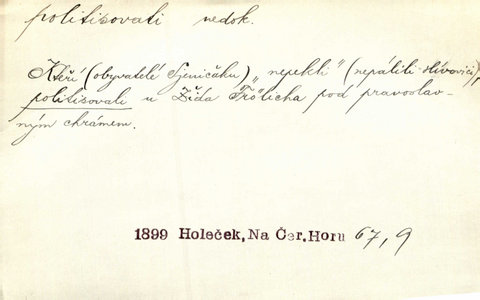 politisovati nedok.
Kteří (obyvatelé Sjeničáku) „nepekli" (nepálili slivovici),
politisovali u Žida Frölicha pod pravoslav-
ným chrámem.
1899 Holeček, Na Čer. Horu 67, 9